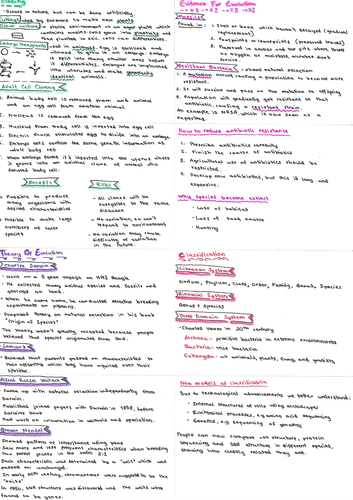 Cloning
Occurs in nature but can be done artificially
by farmers to make new plants
Tissue culture
Embryo Transplants
Adult Cell Cloning
1. Nucleus is removed from and
and an egg cell from another animal
2. Nucleus is removed from the egg
3. Nucleus from body cell is inserted into egg cell
4. Electric shock stimulates egg to divide into an embryo
5. Embryo cells contain the same genetic information as
adult body cell
6. When embryo forms it's inserted into the uterus where
it grows into an identical clone of animal who
donated body cell.
Benefits
Risks
Possible to produce
many organisms with
desired characteristics
Possible to make large
numbers of
species
All clones will be
susceptible to the same
diseases
No variation, so can't
respond to environment
No variation may cause
difficulty of variation
in the future.
Evidence For Evolution
Fossils
1. Shell or bone which haven't decayed (gradual
replacement)
2. Footprints or imprints (preserved traces)
3. Preserved in amber and tar pits where there
is no oxygen or moisture, microbes don't
survive
Resistant Bacteria
1. A mutation occurs causing a population to become more
resistant
2. It will survive and pass on the mutation to offspring
3. Population will gradually get resistant to that
antibiotic, creating a resistant strain
An example is MRSA, which is now seen as a
superbug.
How to reduce antibiotic resistance
1. Prescribe antibiotics carefully
2. Finish the course of antibiotics
3. Agricultural use of antibiotics should be
restricted.
4. Develop new antibiotics, but this is long and
expensive.
Why species become extinct
Loss of habitat
Loss of food source
Hunting
Theory Of Evolution
Charles Darwin
Went on a 5 year voyage on HMS Beagle.
He collected many animal species and fossils and
specimens on land.
When he came home, he conducted selective breeding
experiments on pigeons.
Proposed theory on natural selection in his book
'Origin of Species'
The theory wasn't greatly accepted because people
believed that species originated from God.
Lamarck
Believed that parents passed on characteristics to
their offspring which they have acquired over their
lifetime.
Alfred Russel Wallace
Came up with natural selection independently from
Darwin.
Published joined papers with Darwin in 1858, before
Darwin's book
Had work on colouration in animals and speciation.
Gregor Mendel
Showed pattern of inheritance using peas
Saw more and less prominent characteristics when breeding
two parent plants in the ratio 3:1
Each characteristic was determined by a 'unit' which was
passed on unchanged.
In early 20th century, chromosomes were suggested to be the
'units'
In 1950, DNA structure was discovered and the units were
found to be genes.
Classification
Linnaean System
Kindom, Phylum, Class, Order, Family, Genus, Species
Binomial System
Genus + Species
Three Domain System
Charles Woese in 20th century
Archaea - primitive bacteria in extreme environments
Bacteria - true bacteria
Eukaryota - all animals, plants, fungi and protists
New models of classification
Due to technological advancements we better understand:
Internal structures of cells using microscopes
Biochemical processes, eg amino acid sequencing
Genetics, eg sequencing of genomes
People can now compare cell structure, protein
sequencing and DNA structure in different species,
showing how closely related they are.